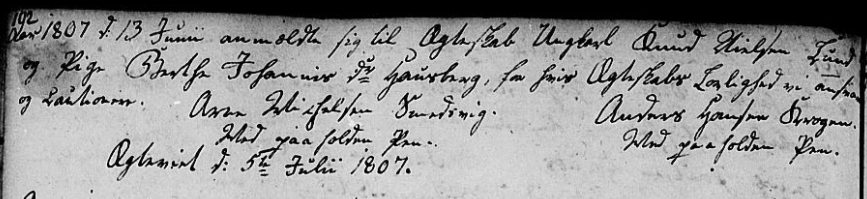 192
Aar 1807 d: 13 Junii anmældte sig til Ægteskab Ungkarl Knud Nielsen Lund
og Pige Berthe Johannis Dr Hausberg, for hvis Ægteskabs Lovlighed vi ansvare
og Cautionere. Arne Michelsen Smedsvig. Anders Hansen Krogen.
Med paaholden Pen. Med paaholden Pen.
Ægteviet d: 5te Julii 1807.